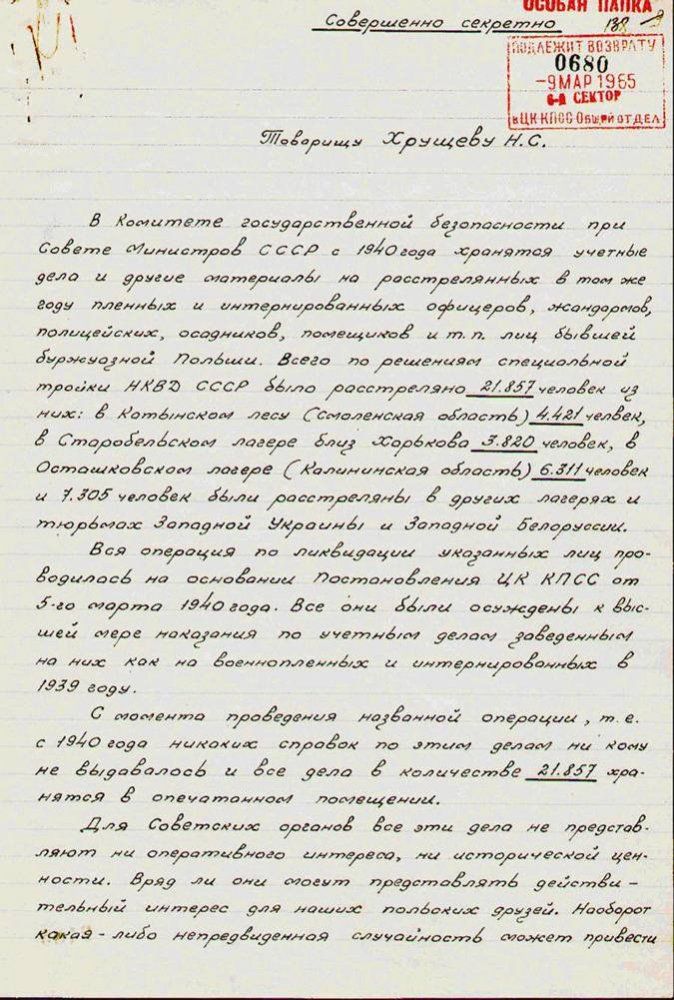 ОСОБАЯ ПАПКА
Совершенно секретно
138
ПОДЛЕЖИТ ВОЗВРАТУ
0680
–9 МАР 1965
6-й СЕКТОР
в ЦК КПСС Общий ОТДЕЛ
Товарищу Хрущеву Н.С.
В Комитете государственной безопасности при
Совете Министров СССР с 1940 года хранятся учетные
дела и другие материалы на расстрелянных в том же
году пленных и интернированных офицеров, жандармов,
полицейских, осадников, помещиков и т.п. лиц бывшей
буржуазной Польши. Всего по решениям специальной
тройки НКВД СССР было расстреляно 21.857 человек из
них: в Катынском лесу (Смоленская область) 4.421 человек,
в Старобельском лагере близ Харькова 3.820 человек, в
Осташковском лагере (Калининская область) 6.311 человек
и 7.305 человек были расстреляны в других лагерях и
тюрьмах Западной Украины и Западной Белоруссии.
Вся операция по ликвидации указанных лиц про-
водилась на основании Постановления ЦК КПСС от
5-го марта 1940 года. Все они были осуждены к выс-
шей мере наказания по учетным делам заведенным
на них как на военнопленных и интернированных в
1939 году.
С момента проведения названной операции, т.е.
с 1940 года никаких справок по этим делам ни кому
не выдавалось и все дела в количестве 21.857 хра-
нятся в опечатанном помещении.
Для Советских органов все эти дела не представ-
ляют ни оперативного интереса, ни исторической цен-
ности. Вряд ли они могут представлять действи-
тельный интерес для наших польских друзей. Наоборот
какая-либо непредвиденная случайность может привести